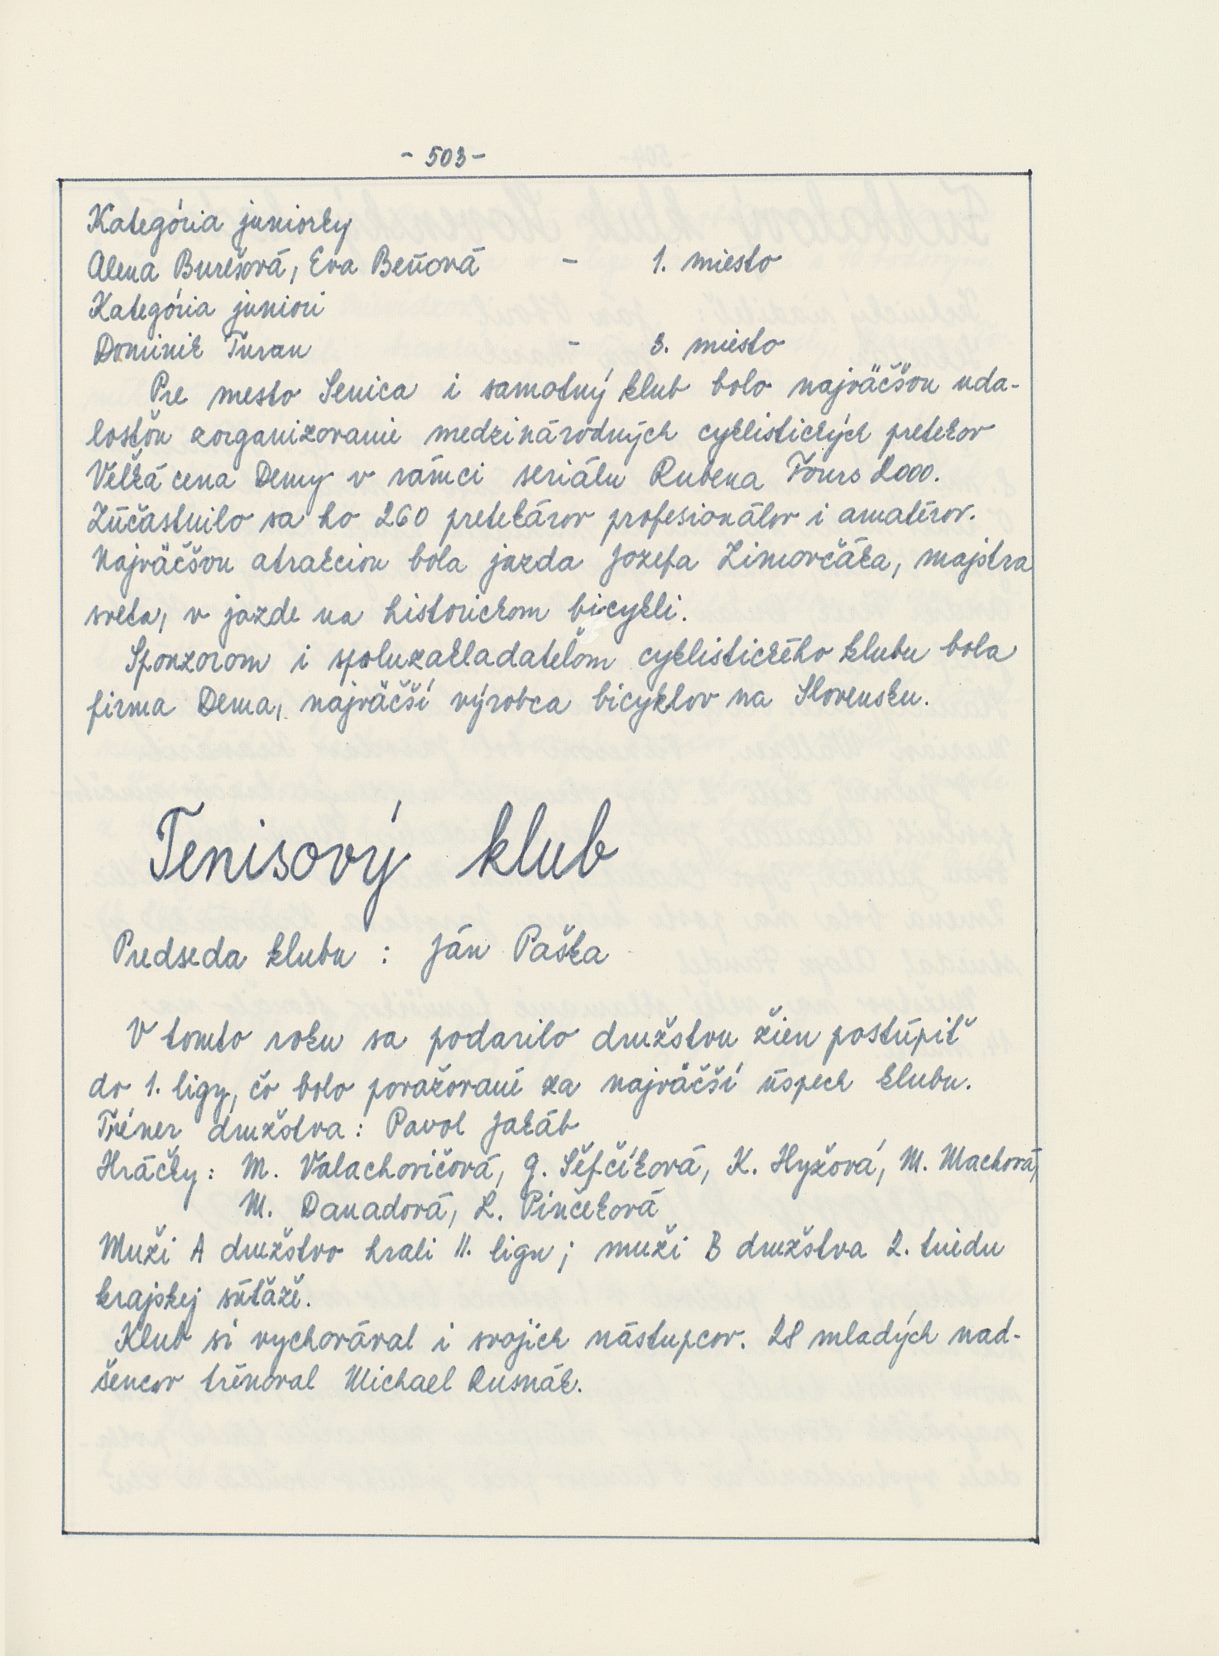 - 503 -
Kategória juniorky
Alena Burešová, Eva Beňová - 1. miesto
Kategória juniori
Dominik Turan - 3. miesto
Pre mesto Senica i samotný klub bolo najväčšou uda-
losťou zorganizovanie medzinárodných cyklistických pretekov
Veľká cena Demy v rámci seriálu Rubena Tours 2000.
Zúčastnilo sa ho 260 pretekárov profesionálov i amatérov.
Najväčšou atrakciou bola jazda Jozefa Zimovčáka, majstra
sveta, v jazde na historickom bicykli.
Sponzorom i spoluzakladateľom cyklistického klubu bola
firma Dema, najväčší výrobca bicyklov na Slovensku.
Tenisový klub
Predseda klubu : Ján Paška
V tomto roku sa podarilo družstvu žien postúpiť
do 1. ligy, čo bolo považované za najväčší úspech klubu.
Tréner družstva : Pavol Jakáb
Hráčky : M. Valachovičová, G. Šefčíková, K. Hyžová, M. Machová,
M. Danadová, L. Pinčeková
Muži A družstvo hrali II. ligu ; muži B družstva 2. triedu
krajskej súťaže.
Klub si vychovával i svojich nástupcov. 28 mladých nad-
šencov trénoval Michael Rusnák.